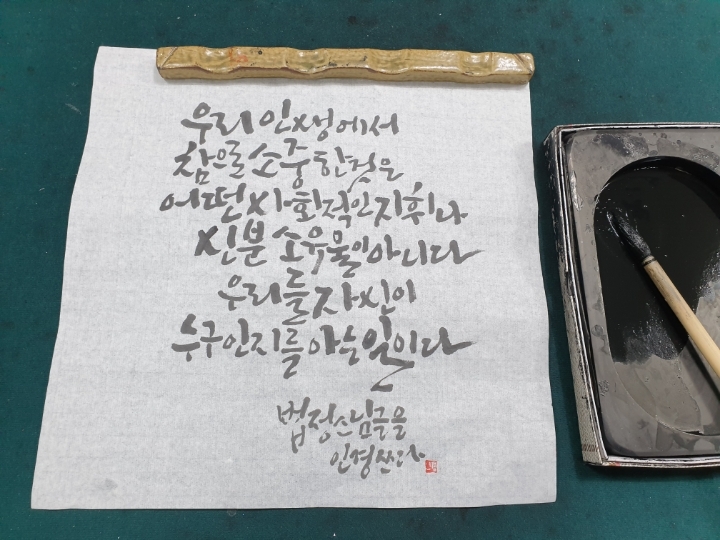 우리 인생에서
참으로 소중한 것은
어떤 사회적인 지휘나
신분 소유물이 아니다
우리들 자신이
누구인지를 아는 일이다
법정스님글을
인경쓰다